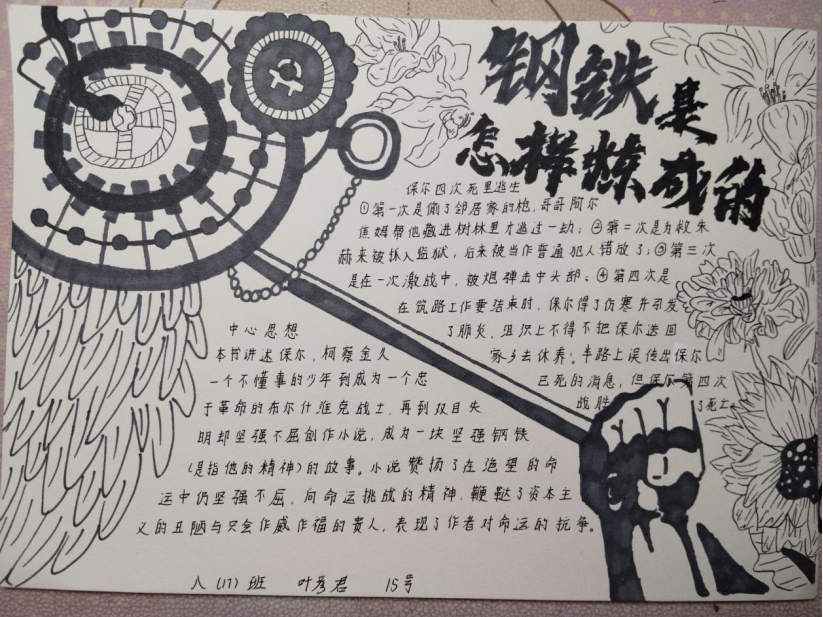 钢铁是
怎样炼成的
保尔四次死里逃生
①第一次是偷了邻居家的枪，哥哥阿尔
焦姆帮他藏进树林里才逃过一劫；②第二次是为救朱
赫来被抓入监狱，后来被当作普通犯人错放了；③第三次
是在一次激战中，被炮弹击中头部；④第四次是
在筑路工作要结束时，保尔得了伤寒并引发
了肺炎，组织上不得不把保尔送回
家乡去休养。半路上误传出保尔
已死的消息，但保尔第四次
战胜 了死亡
中心思想
本书讲述保尔，柯察金久
一个不懂事的少年到成为一个忠
于革命的布尔什维克战士，再到双目失
明却坚强不屈创作小说，成为一块坚强钢铁
（是指他的精神）的故事。小说赞扬了在绝望的命
运中仍坚强不屈，向命运挑战的精神，鞭挞了资本主
义的丑陋与只会作威作福的贵人，表现了作者对命运的抗争。
八（17）班 叶彦君 15号